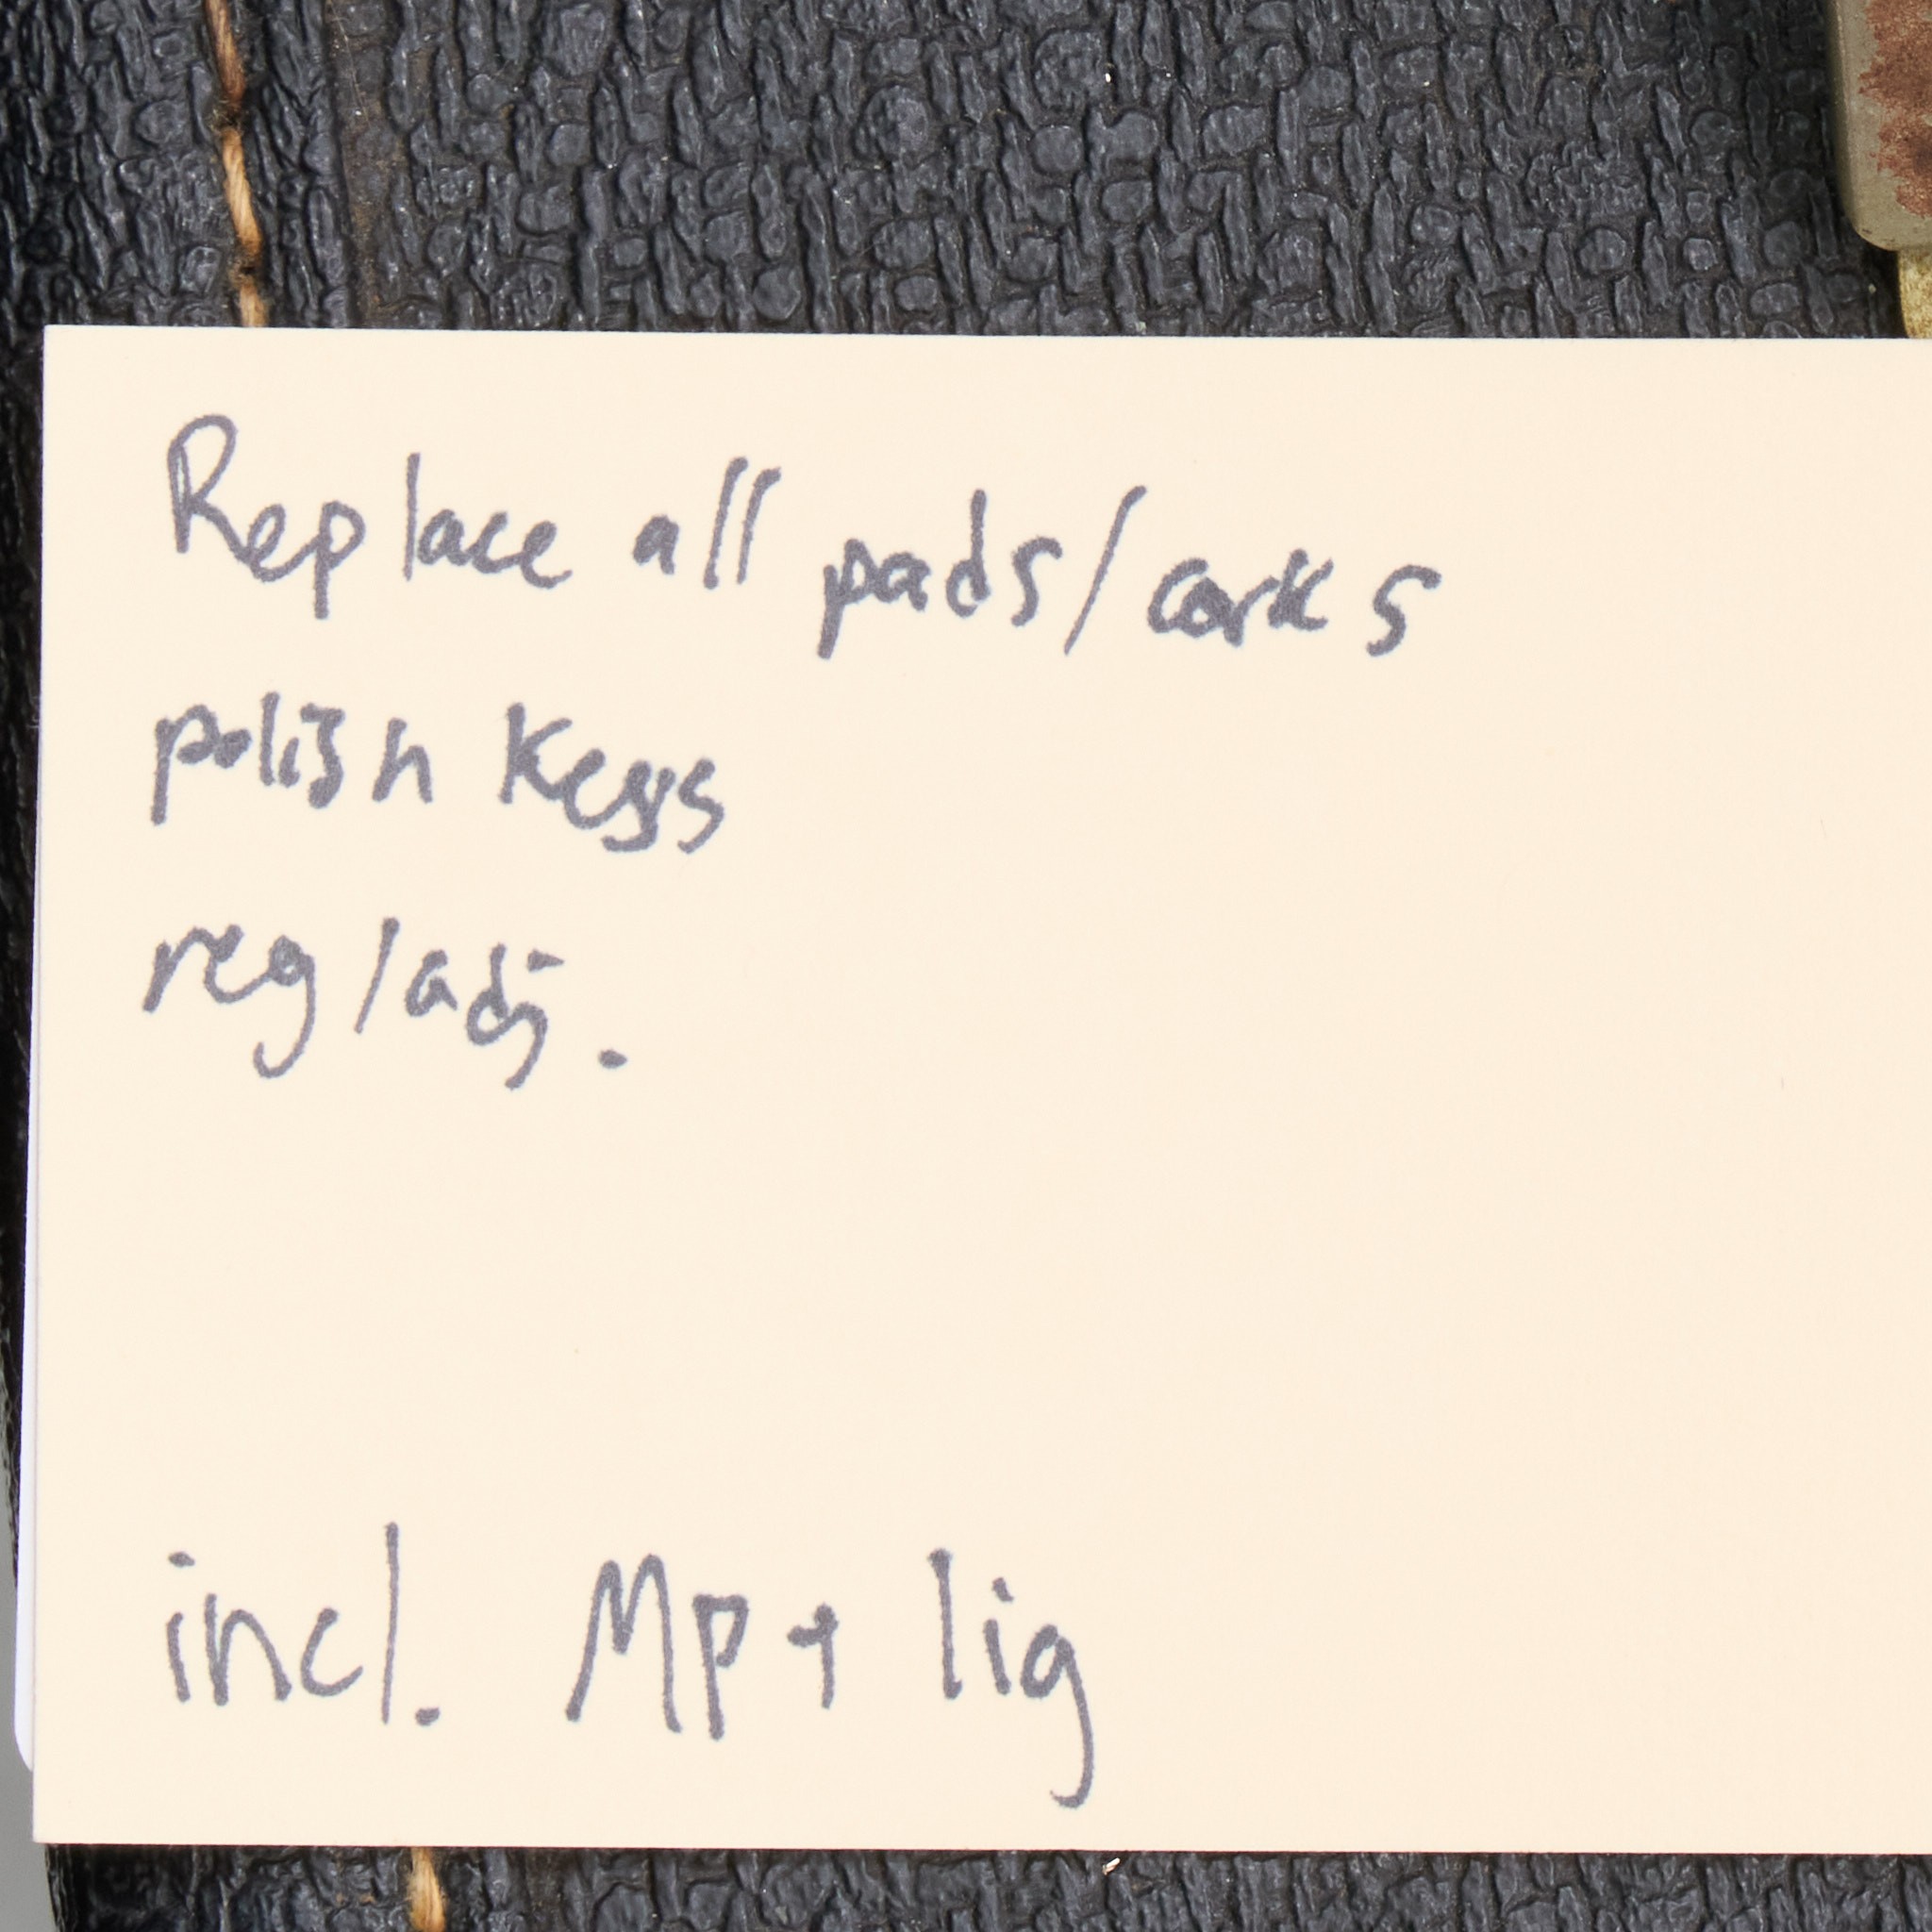 Replace all pads/corks
polish keys
reg/adj.
incl. Mp + lig